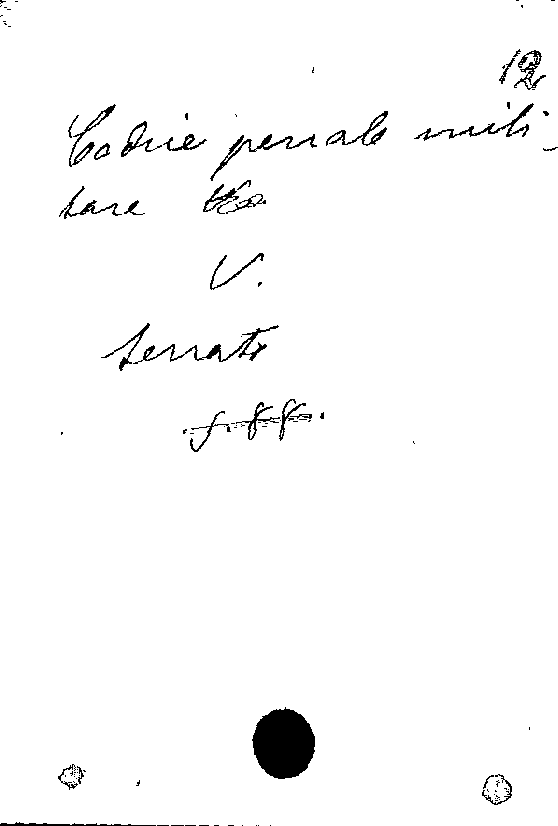 12
Codice penale mili-
tare
V.
Senato